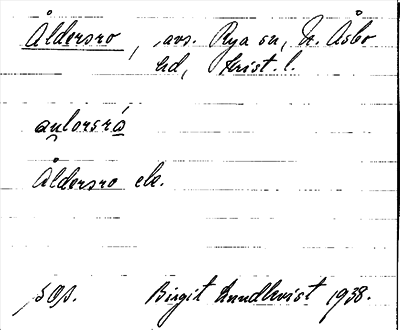 Åldersro, avs. Rya sn, N. Åsbo
hd, Krist l.
aulorsrå
Åldersro ek.
SOS. Birgit Lundkvist 1938.